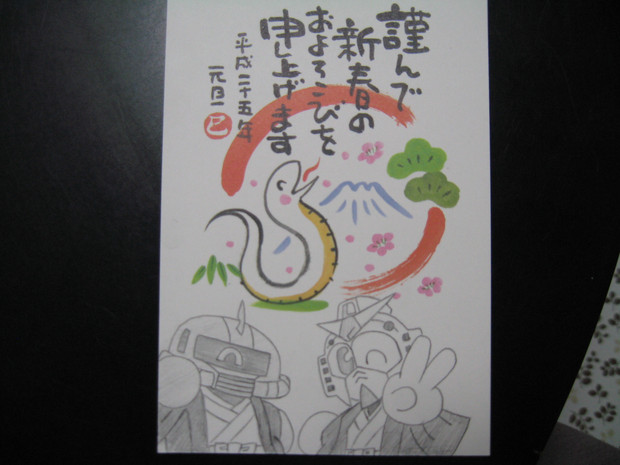 謹んで
新春の
およろこびを
申し上げます
平成二十五年
元旦
巳